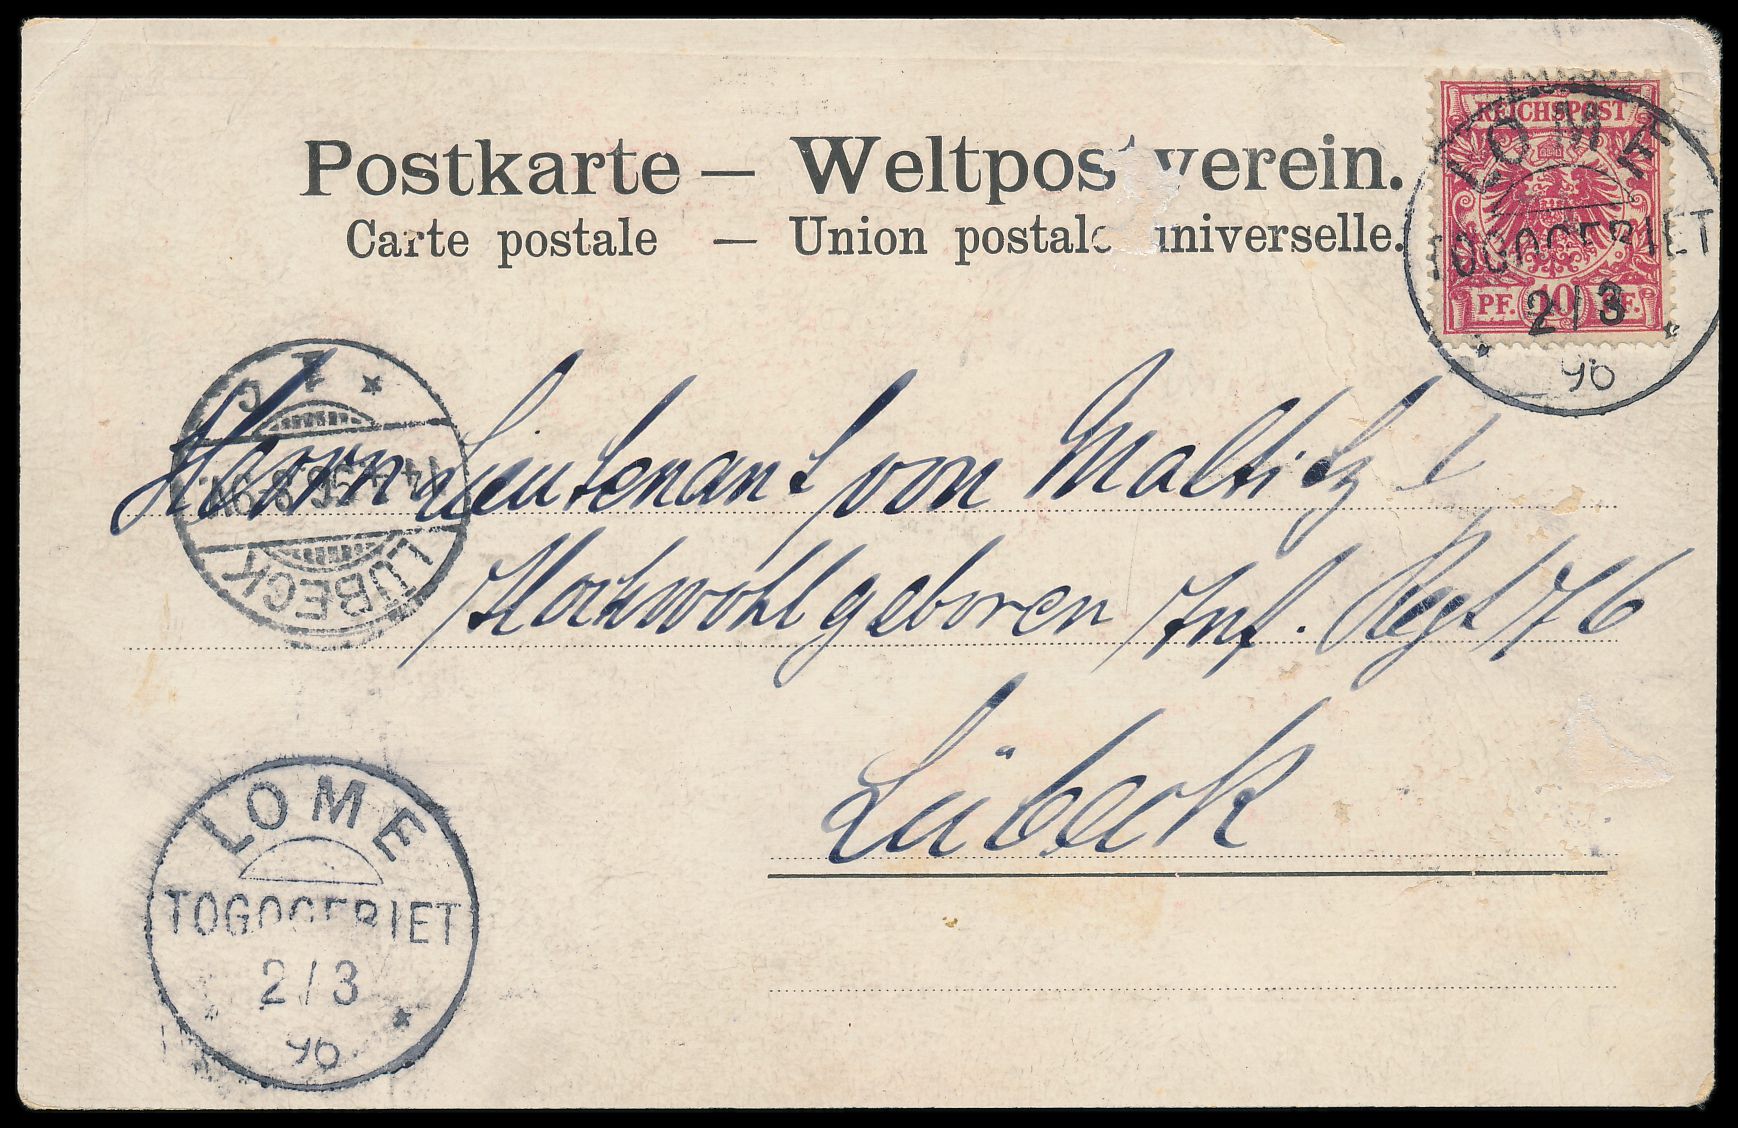 Postkarte — Weltpostverein.
Carte postale — Union postale universelle.
REICHSPOST
PF. 10 PF.
LOME
TOGOGEBIET
2/3
96
Herrn Lieutenant von Maltitz I
Hochwohlgeboren Inf. Regt 76
Lübeck
LÜBECK
LOME
TOGOGEBIET
2/3
96